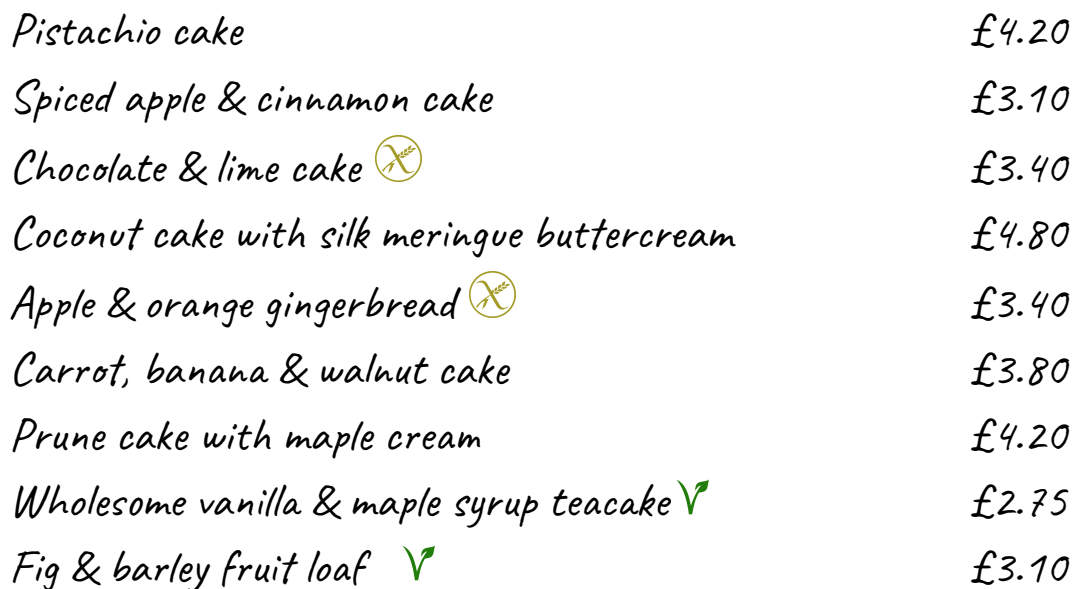 Pistachio cake £4.20
Spiced apple & cinnamon cake £3.10
Chocolate & lime cake £3.40
Coconut cake with silk meringue buttercream £4.80
Apple & orange gingerbread £3.40
Carrot, banana & walnut cake £3.80
Prune cake with maple cream £4.20
Wholesome vanilla & maple syrup teacake V £2.75
Fig & barley fruit loaf V £3.10